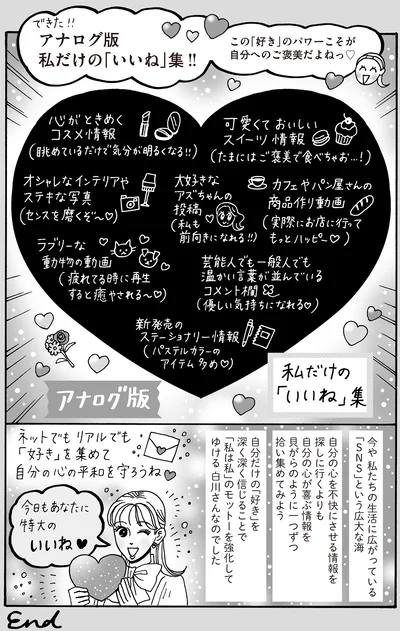 できた!!
アナログ版
私だけの「いいね」集!!
この「好き」のパワーこそが
自分へのご褒美だよねっ♡
心がときめく
コスメ情報
(眺めているだけで気分が明るくなる!!)
可愛くて おいしい
スイーツ情報
(たまにはご褒美で食べちゃお…!)
オシャレなインテリアや
ステキな写真
(センスを磨くぞ〜♡)
大好きな
アズちゃんの
投稿
(私も
前向きになれる!!)
カフェやパン屋さんの
商品作り動画
(実際にお店に行って
もっとハッピー♡)
ラブリーな
動物の動画
(疲れてる時に再生
すると癒やされる〜♡)
芸能人でも一般人でも
温かい言葉が並んでいる
コメント欄
(優しい気持ちになれる♡)
新発売の
ステーショナリー情報
(パステルカラーの
アイテム多め♡)
アナログ版
私だけの
「いいね」集
今や私たちの生活に広がっている
「SNS」という広大な海
自分の心を不快にさせる情報を
探しに行くよりも
自分の心が喜ぶ情報を
貝がらのように一つずつ
拾い集めてみよう
自分だけの「好き」を
深く深く信じることで
「私は私」のモットーを強化して
ゆける白川さんなのでした
ネットでもリアルでも
「好き」を集めて
自分の心の平和を守ろうね
今日もあなたに
特大の
いいね♥
End